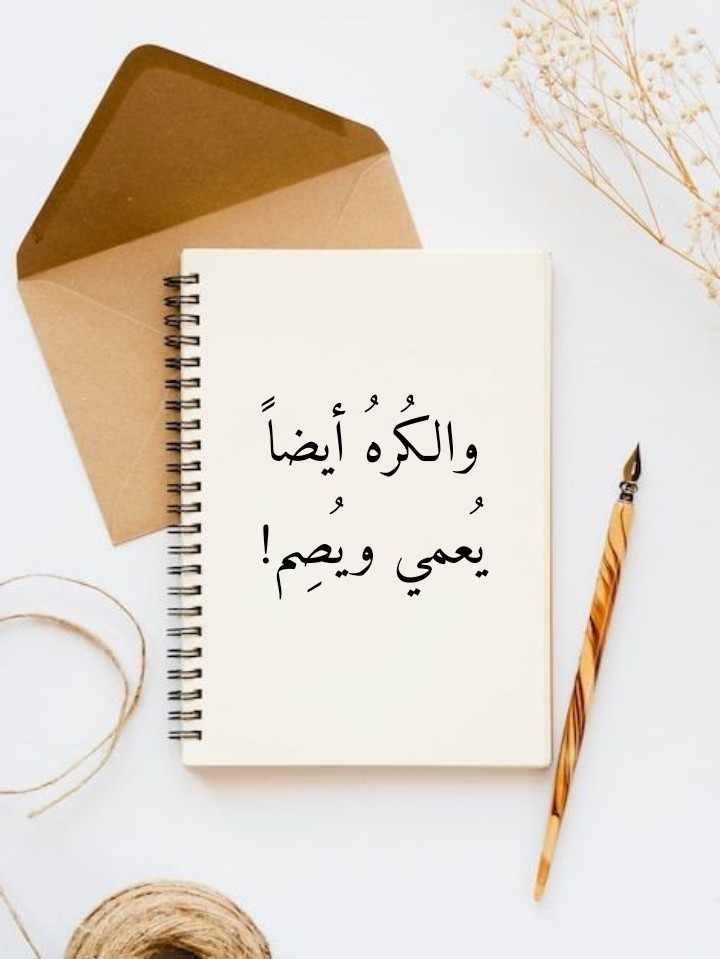 والكُرهُ أيضاً
يُعمي ويُصِم!